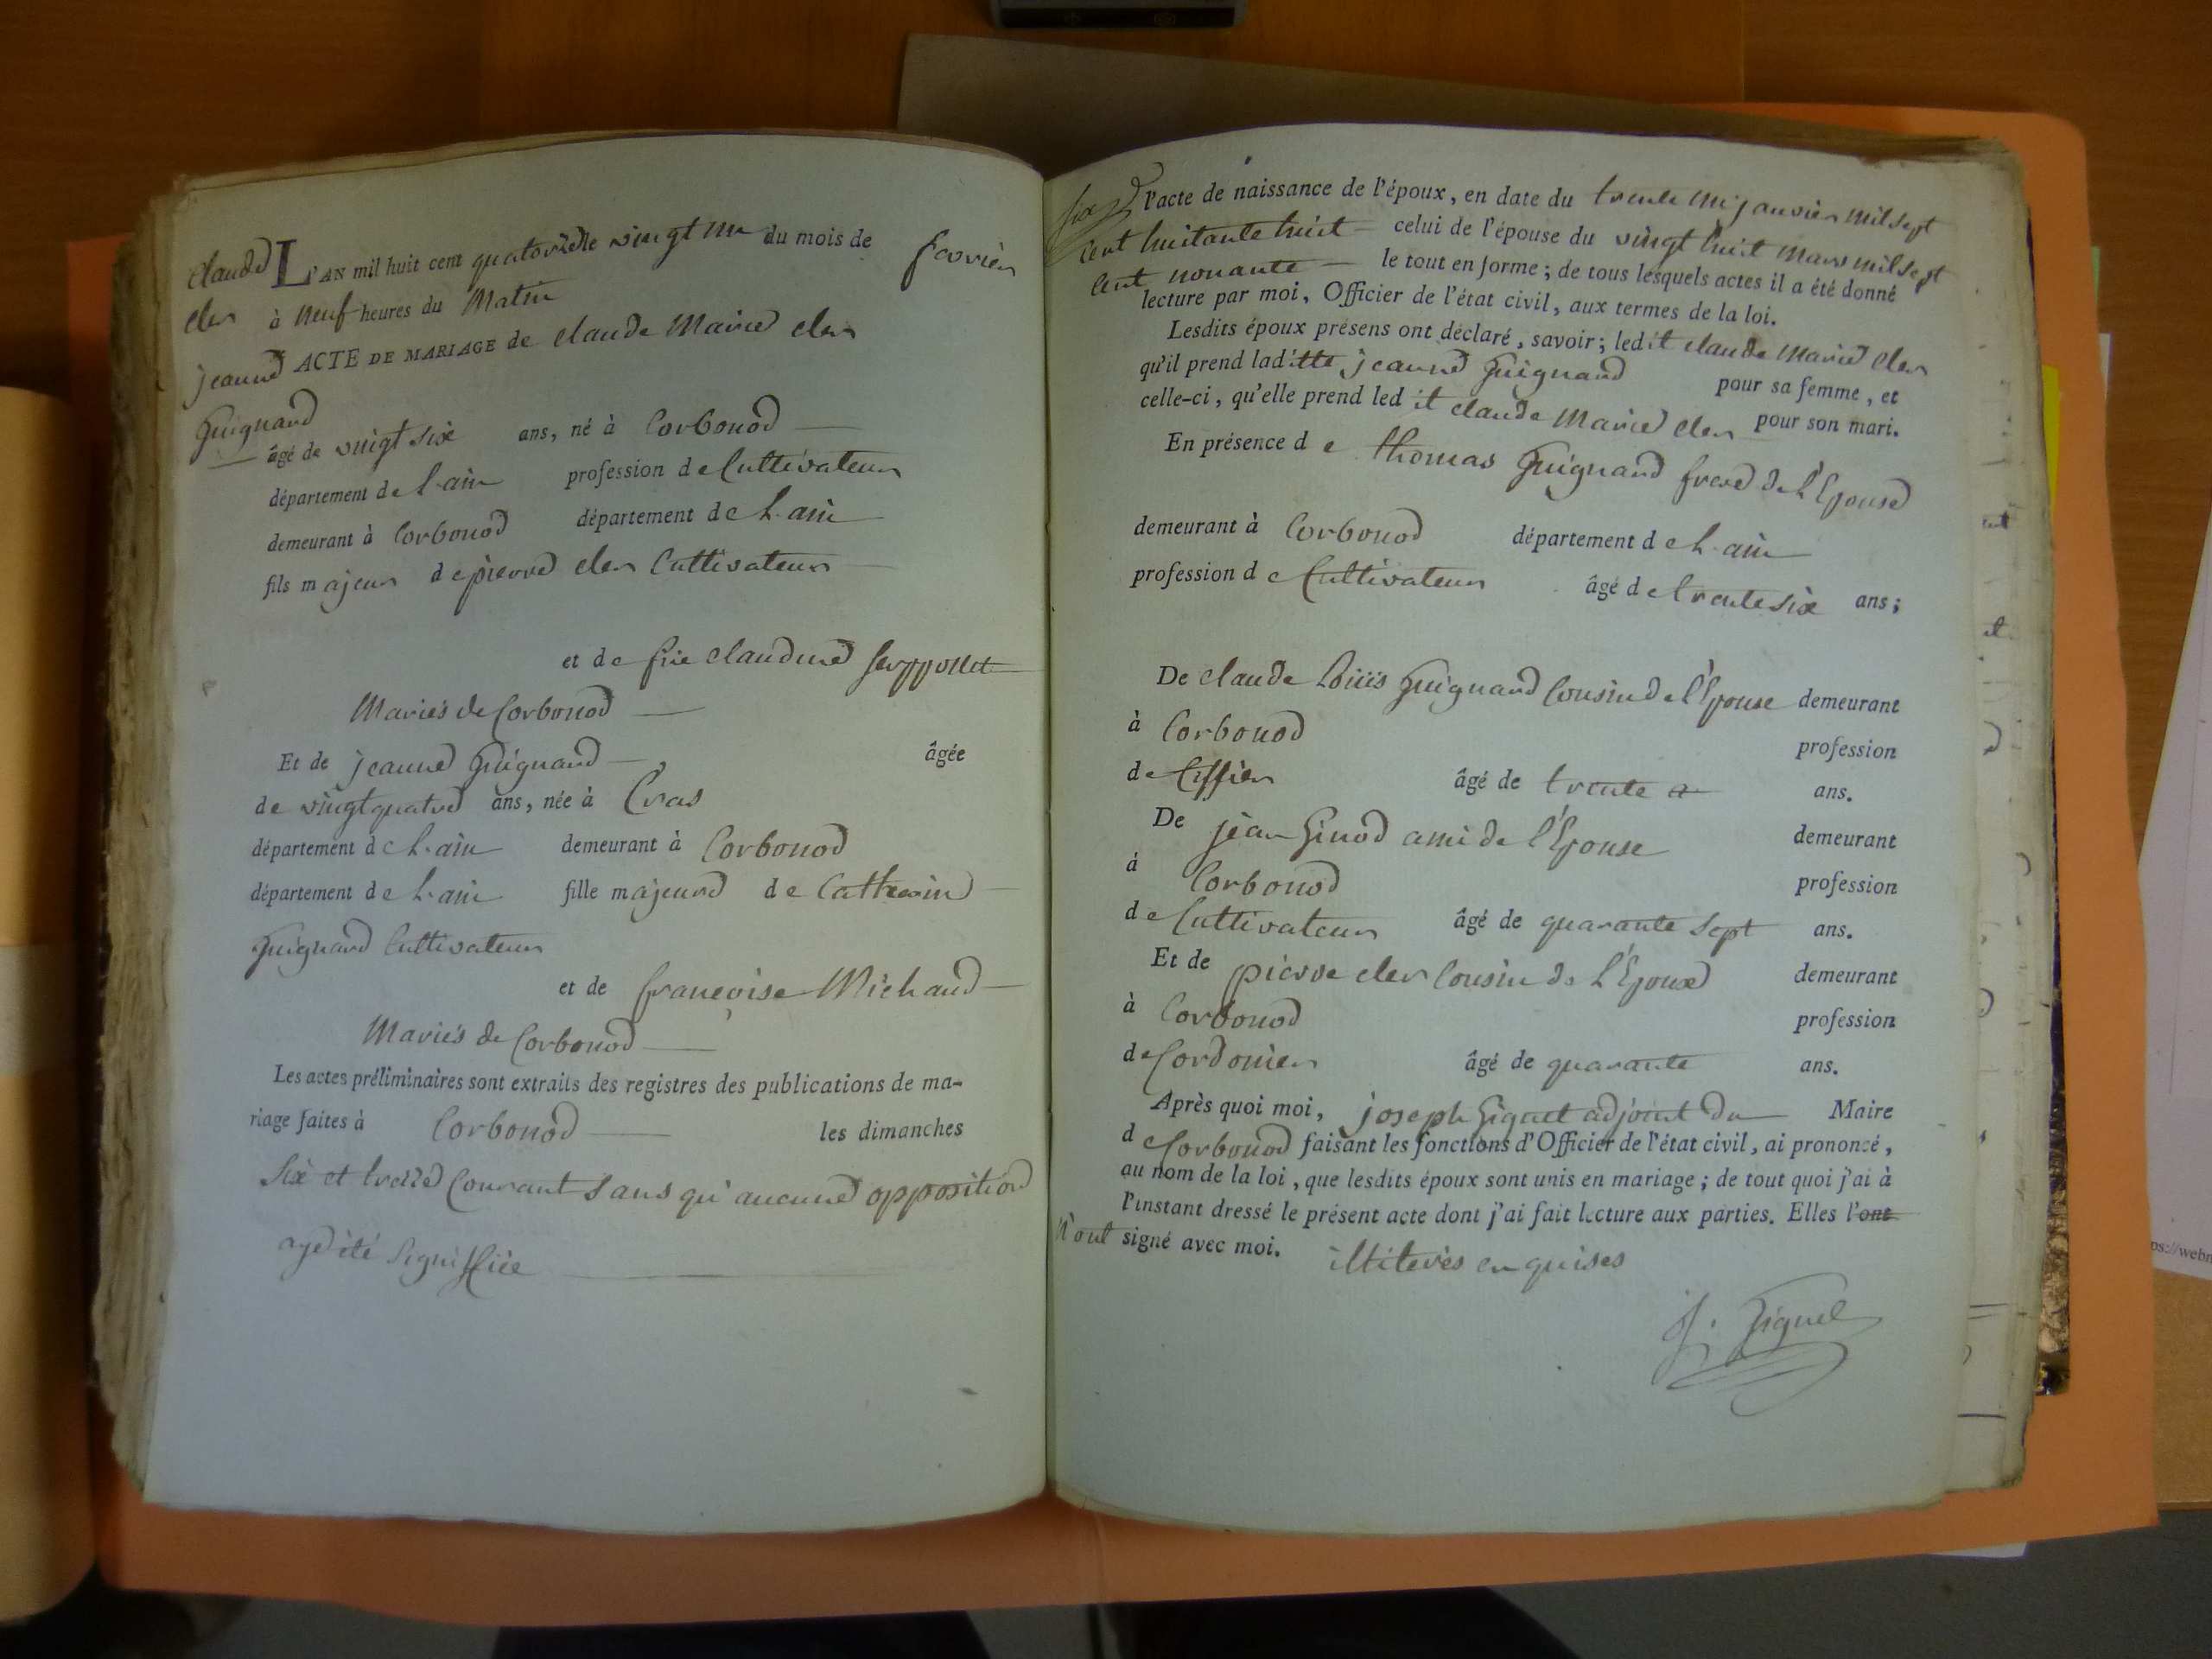 claude
cler
jeanne
Guignard
L'AN mil huit cent quatorze le vingt un du mois de fevrier
à neuf heures du Matin
ACTE DE MARIAGE de claude Marie cler
âgé de vingt six ans, né à Corbonod
département de l'ain profession de Cultivateur
demeurant à Corbonod département de l'ain
fils majeur de pierre cler Cultivateur
et de fue claudine Serppollet
Mariés de Corbonod
Et de jeanne Guignard âgée
de vingt quatre ans, née à Cras
département de l'ain demeurant à Corbonod
département de l'ain fille majeure de Catherin
Guignard Cultivateur
et de françoise Michaud
Mariés de Corbonod
Les actes préliminaires sont extraits des registres des publications de ma-
riage faites à Corbonod les dimanches
Six et treize Courant Sans qu'aucune opposition
aye été Signiffiée
l'acte de naissance de l'époux, en date du trente un janvier mil sept
Cent huitante huit celui de l'épouse du vingt huit mars mil sept
Cent nonante le tout en forme; de tous lesquels actes il a été donné
lecture par moi, Officier de l'état civil, aux termes de la loi.
Lesdits époux présens ont déclaré, savoir; ledit claude Marie cler
qu'il prend laditte jeanne Guignard pour sa femme, et
celle-ci, qu'elle prend led it claude Marie cler pour son mari.
En présence de thomas Guignard frere de l'Epouse
demeurant à Corbonod département de l'ain
profession de Cultivateur âgé de trente six ans;
De claude Loüis Guignard Cousin de l'Epouse demeurant
à Corbonod profession
de âgé de trente ans.
De jean Ginod ami de l'Epouse demeurant
à Corbonod profession
de Cultivateur âgé de quarante Sept ans.
Et de pierre cler Cousin de l'Epoux demeurant
à Corbonod profession
de Cordonier âgé de quarante ans.
Après quoi moi, joseph Giguet adjoint du Maire
de Corbonod faisant les fonctions d'Officier de l'état civil, ai prononcé,
au nom de la loi, que lesdits époux sont unis en mariage; de tout quoi j'ai à
l'instant dressé le présent acte dont j'ai fait lecture aux parties. Elles l'ont
N'ont signé avec moi. illiterés enquises
J. Giguet